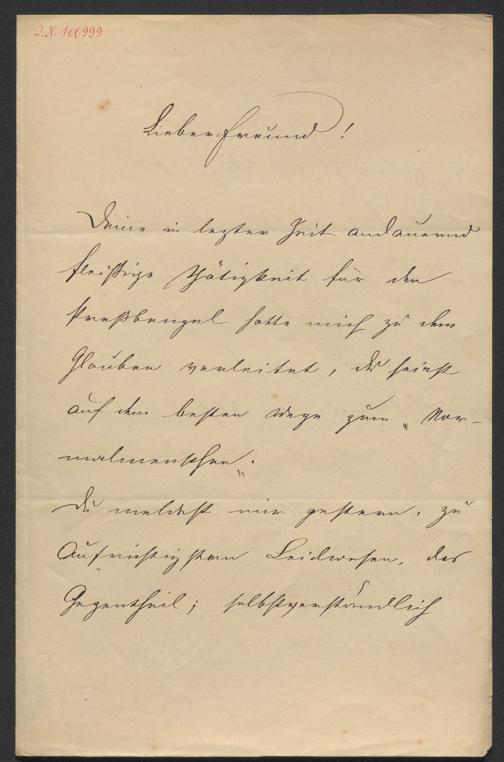 J.N. 160999
Lieber Freund!
Deine in lezter Zeit andauernd
fleißige Thätigkeit für den
Preßbengel hatte mich zu dem
Glauben verleitet, du seiest
auf dem besten Wege zum „Nor-
malmenschen“.
Du meldest mir gestern, zu
aufrichtigstem Leidwesen, das
Gegentheil; selbstverständlich